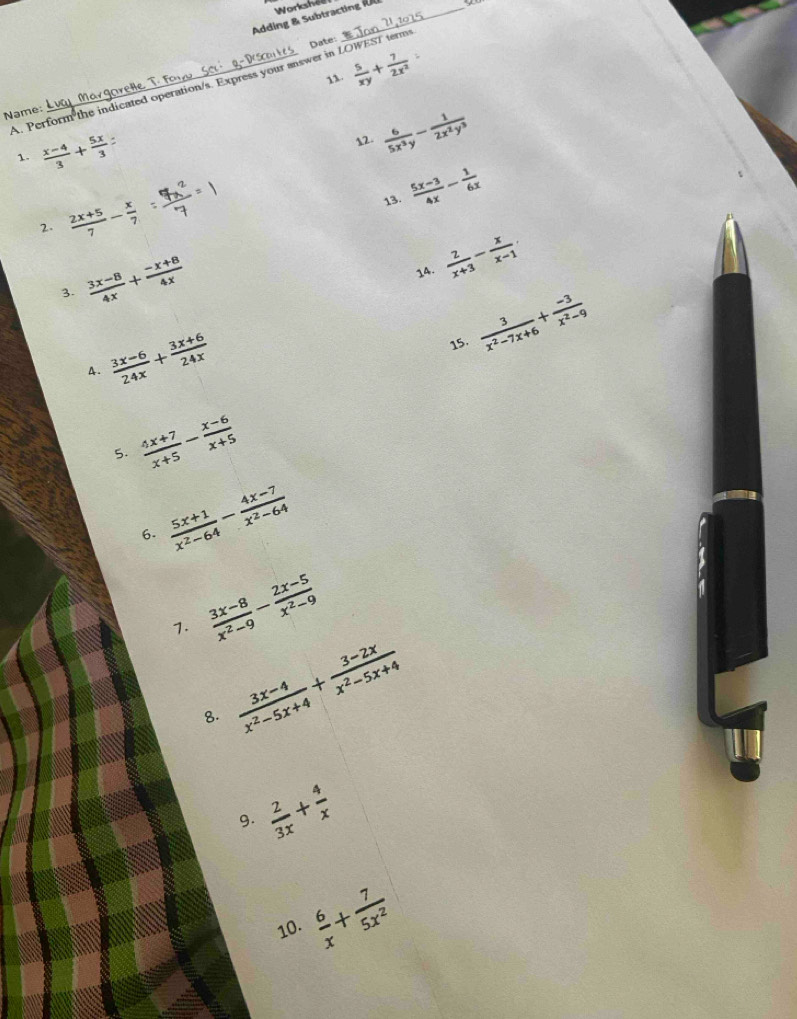 Adding & Subtracting
Name: Lucy Margarette T. Date: Jan 21, 2025
A. Perform the indicated operation/s. Express your answer in LOWEST terms.
1. (x-4)/3 + 5x/3 =
2. (2x+5)/7 - x/7 = /7 = 1
3. (3x-8)/4x + (-x+8)/4x
4. (3x-6)/24x + (3x+6)/24x
5. (4x+7)/(x+5) - (x-6)/(x+5)
6. (5x+1)/(x²-64) - (4x-7)/(x²-64)
7. (3x-8)/(x²-9) - (2x-5)/(x²-9)
8. (3x-4)/(x²-5x+4) + (3-2x)/(x²-5x+4)
9. 2/3x + 4/x
10. 6/x + 7/5x²
11. 5/xy + 7/2x² :
12. 6/5x³y - 1/2x²y³
13. (5x-3)/4x - 1/6x
14. 2/(x+3) - x/(x-1)
15. 3/(x²-7x+6) + -3/(x²-9)